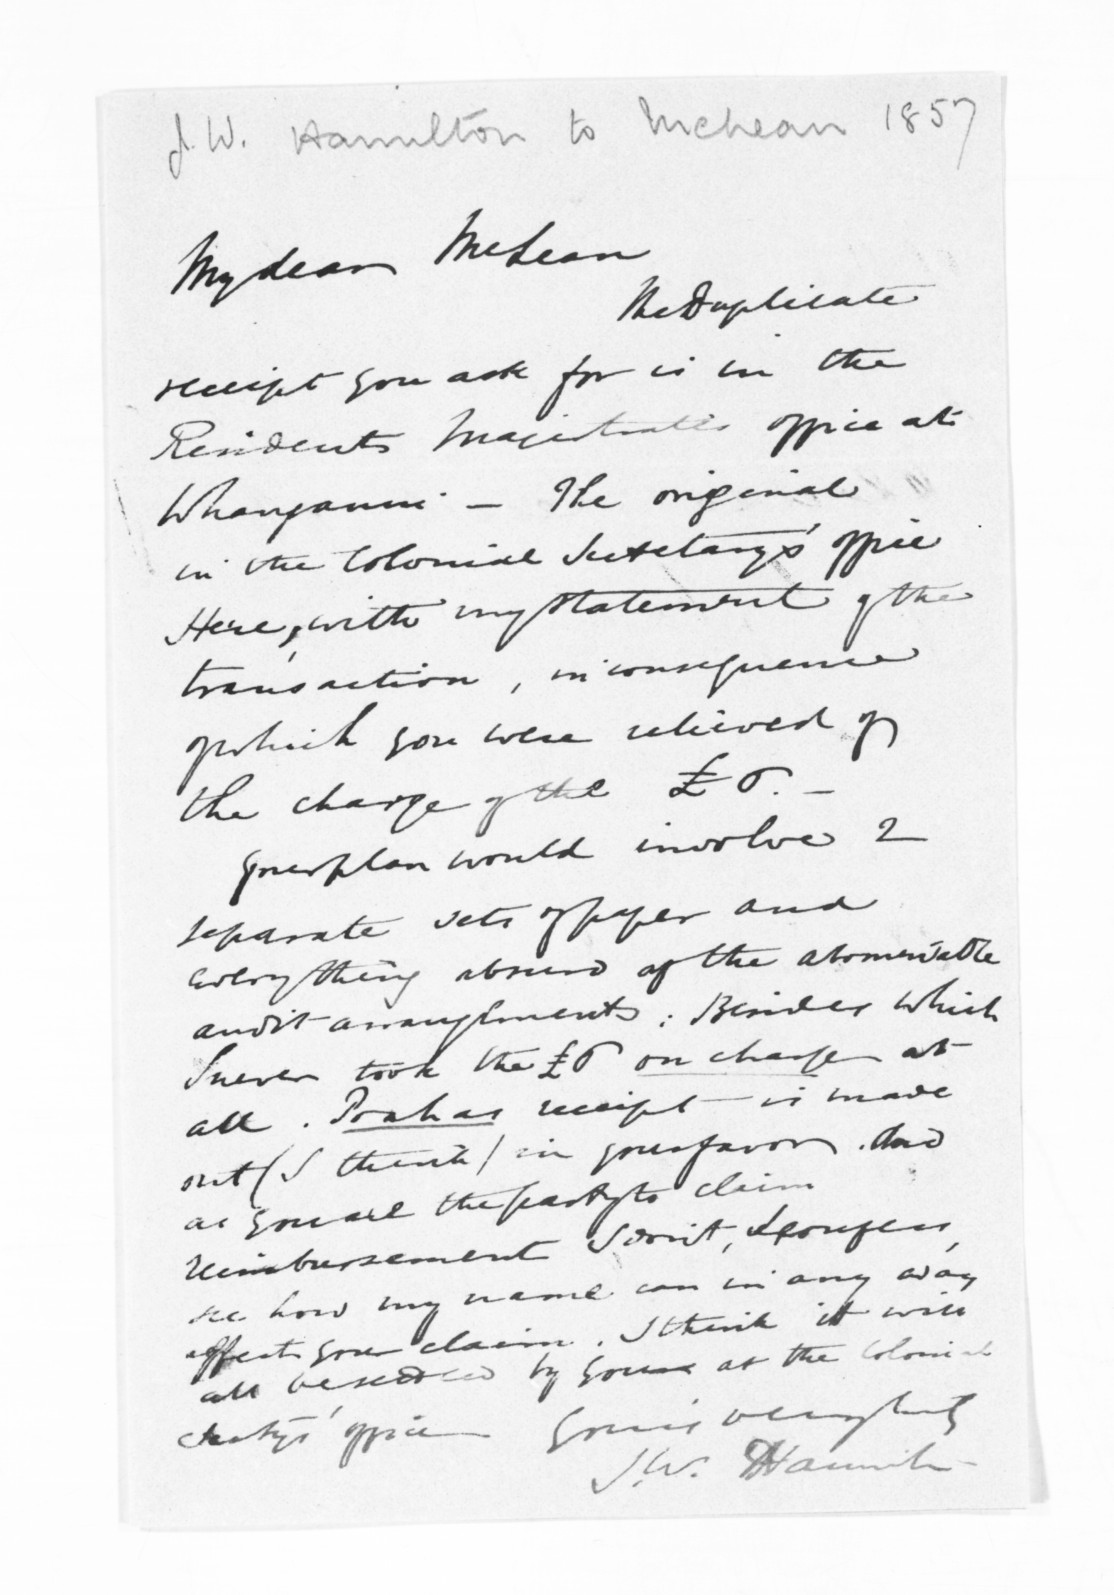 J. W. Hamilton to McLean 1857
My dear McLean
The Duplicate
receipt you ask for is in the
Residents Magistrates office at
Whanganui - The original
in the Colonial Secretary's office
Here, with my statement of the
transaction, in consequence
of which you were relieved of
the charge of the £6. -
your plan would involve 2
separate sets of paper and
everything absurd of the abominable
audit arrangements: Besides which
I never took the £6 on charge at
all. receipt is made
out (I think) in your favor. And
as you are the party to claim
reimbursement I don't, I confess,
see how my name can in any way
affect your claim. I think it will
all be settled by you at the Colonial
Secty's office yours very truly
J. W. Hamilton